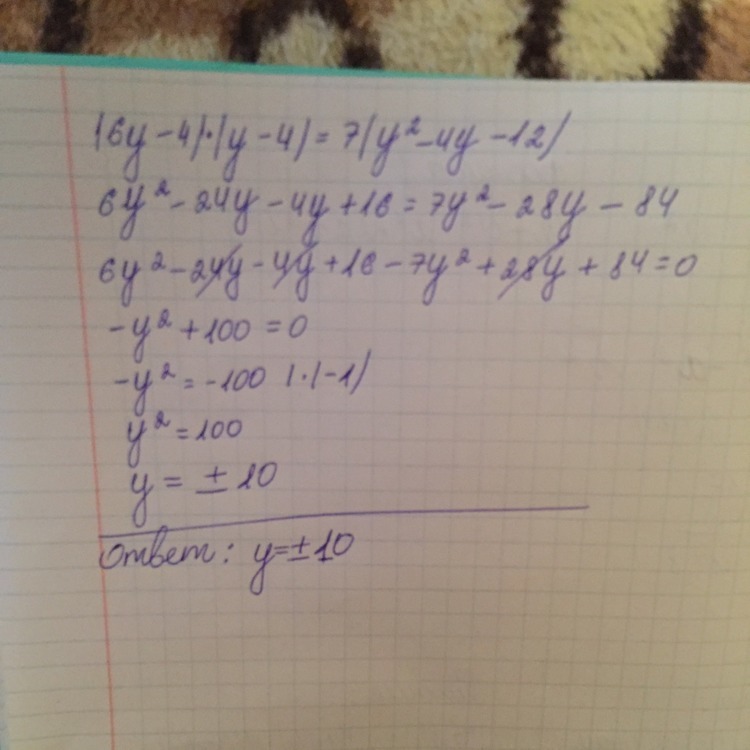 (6y-4)·(y-4)=7(y²-4y-12)
6y²-24y-4y+16=7y²-28y-84
6y²-24y-4y+16-7y²+28y+84=0
-y²+100=0
-y²=-100 |·(-1)
y²=100
y=±10
Ответ: y=±10